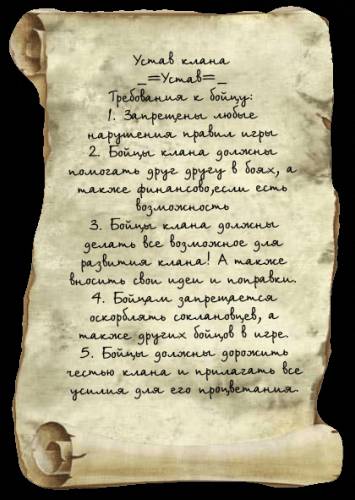 Устав клана
_=Устав=_
Требования к бойцу:
1. Запрещены любые
нарушения правил игры
2. Бойцы клана должны
помогать друг другу в боях, а
также финансово,если есть
возможность
3. Бойцы клана должны
делать все возможное для
развития клана! А также
вносить свои идеи и поправки.
4. Бойцам запрещается
оскорблять соклановцев, а
также других бойцов в игре.
5. Бойцы должны дорожить
честью клана и прилагать все
усилия для его процветания.